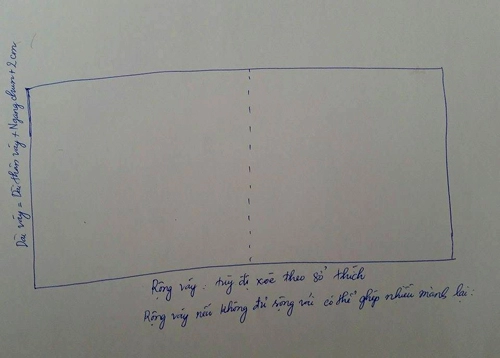 Dài váy = Dài thân váy + Ngang chun + 2 cm
Rộng váy : tùy độ xòe theo sở thích
Rộng váy nếu không đủ rộng vải có thể ghép nhiều mảnh lại.